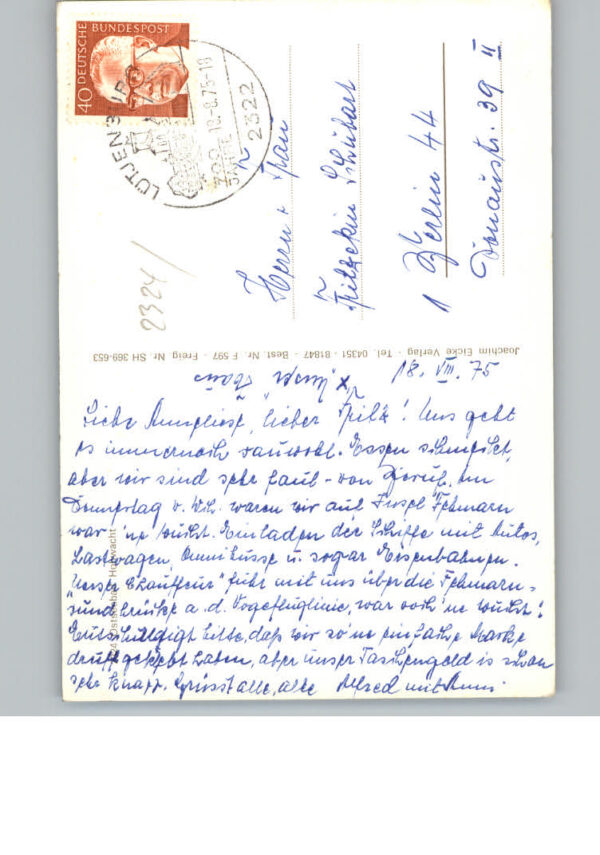 DEUTSCHE BUNDESPOST
40
LÜTJENBURG
700 JAHRE
18.-8.75-18
2322
2324/
Herrn u. Frau
Fritzekin Schubart
1 Berlin 44
Donaustr. 39 II
Joachim Eicke Verlag · Tel. 04351 · 81847 · Best. Nr. F 597 · Freig Nr SH 369-653
18. VIII. 75
Liebe Anneliese, lieber Fritz! Uns geht
es immernoch sauwohl. Essen schmeckt,
aber wir sind sehr faul - von Beruf. Am
Donnerstag v. W. waren wir auf Insel Fehmarn
war 'ne Wucht. Einladen der Schiffe mit Autos,
Lastwagen, Omnibusse u. sogar Eisenbahnen.
Unser Chauffeur fuhr mit uns über die Fehmarn-
sundbrücke a. d. Vogelfluglinie, war ooch 'ne Wucht!
Entschuldigt bitte, daß wir so'ne einfache Marke
druffgeklebt haben, aber unser Taschengeld is schon
sehr knapp. Grüsst alle, alle Alfred mit Anni